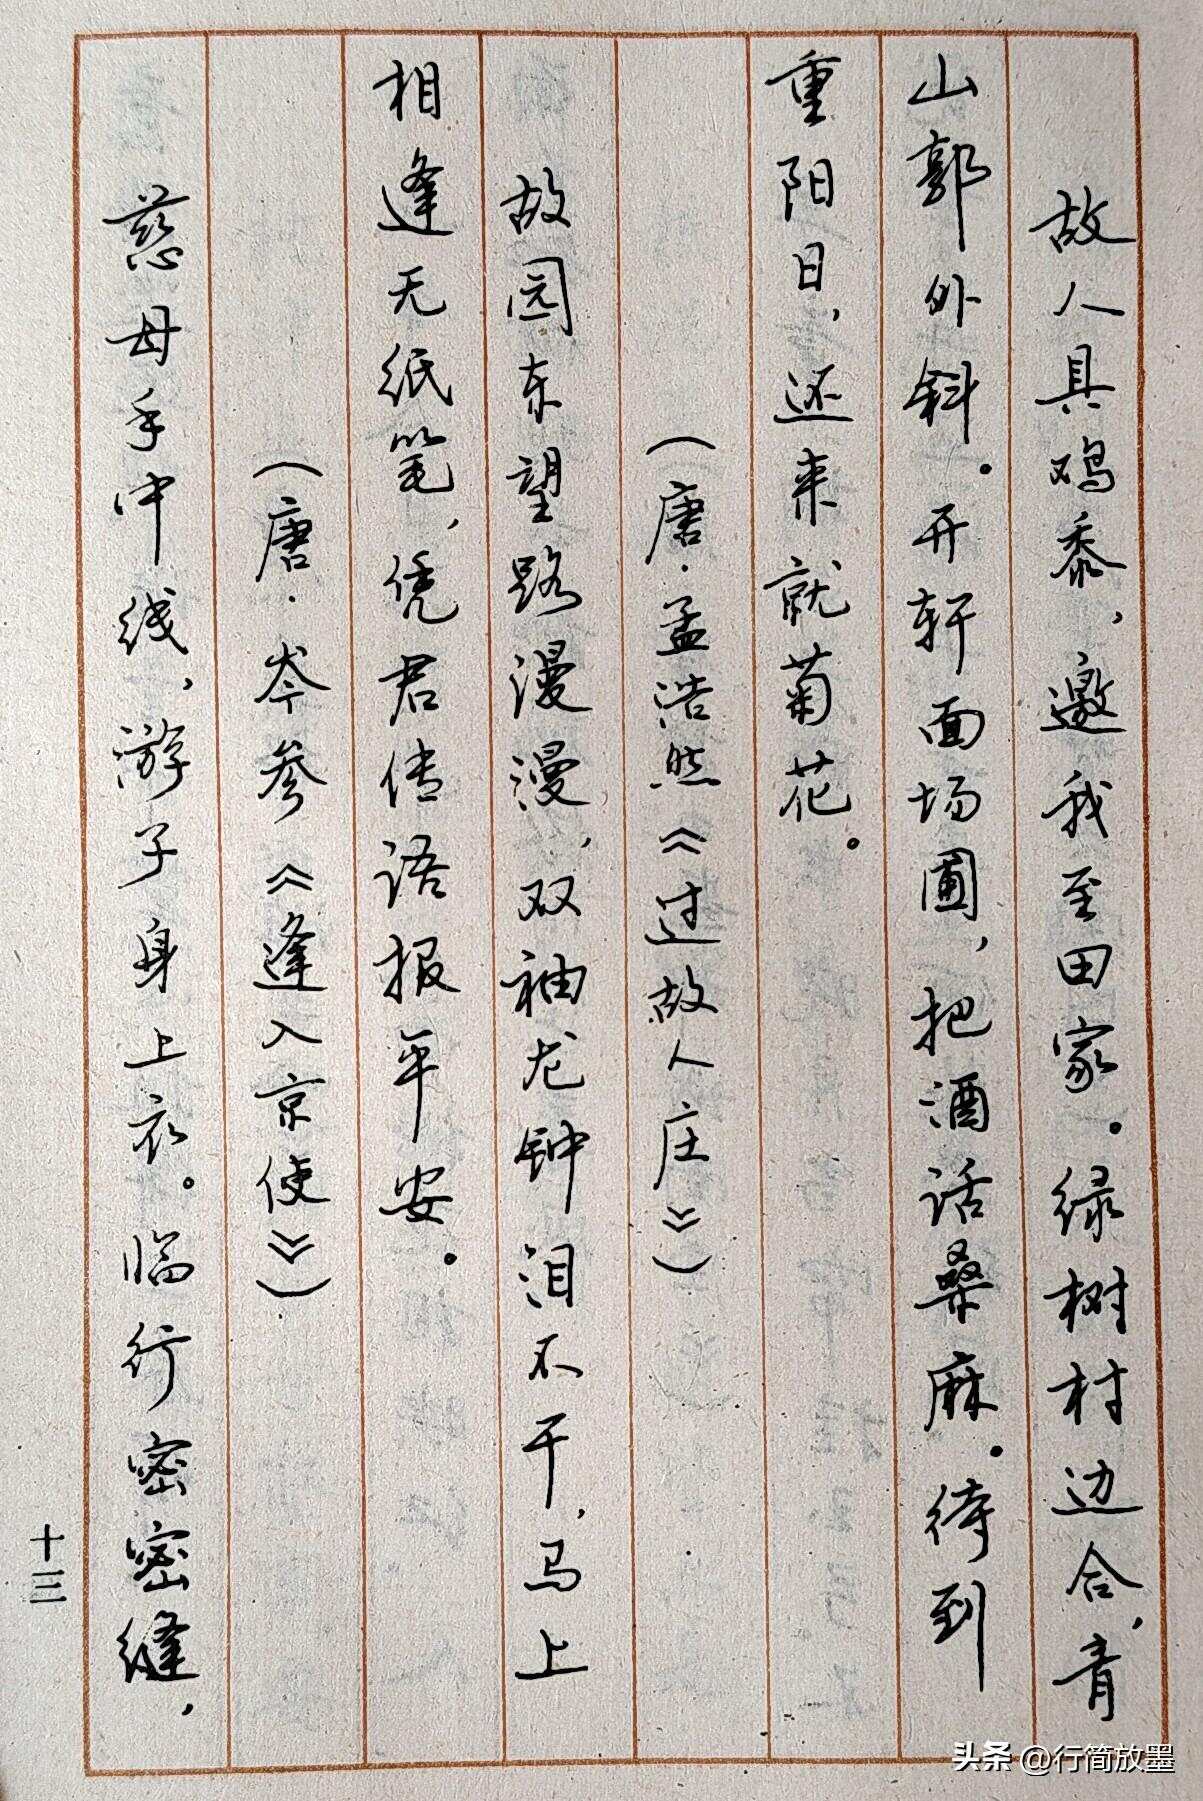 故人具鸡黍，邀我至田家。绿树村边合，青
山郭外斜。开轩面场圃，把酒话桑麻。待到
重阳日，还来就菊花。
（唐·孟浩然《过故人庄》）
故园东望路漫漫，双袖龙钟泪不干，马上
相逢无纸笔，凭君传语报平安。
（唐·岑参《逢入京使》）
慈母手中线，游子身上衣。临行密密缝，
十三
头条 @行简放墨